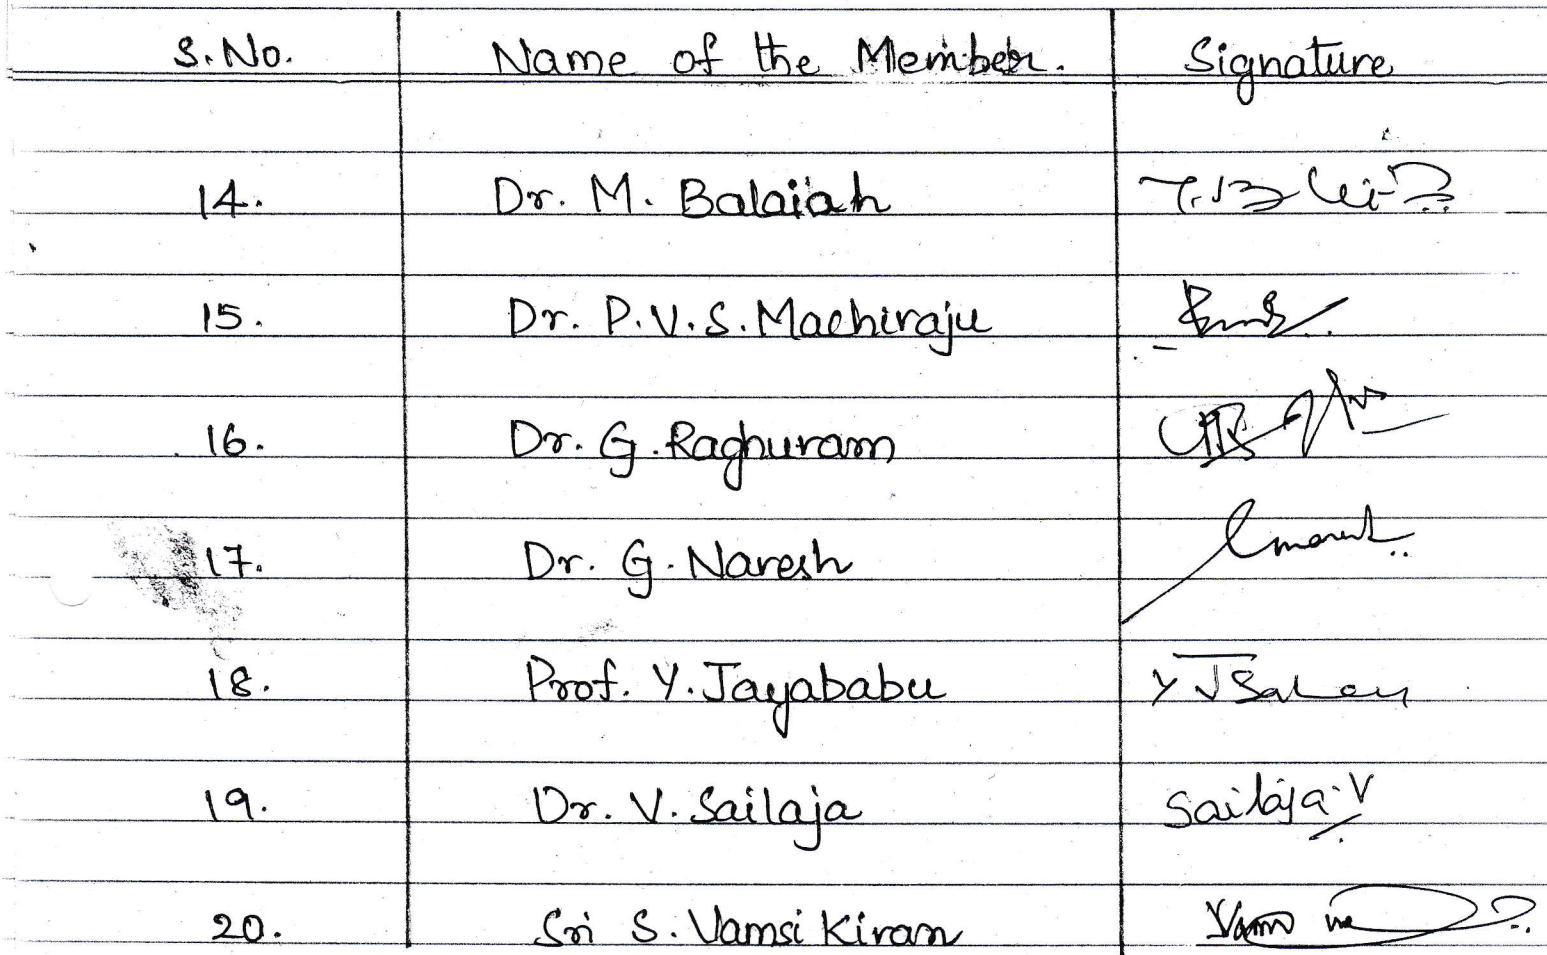 S.No. Name of the Member. Signature
14. Dr. M. Balaiah
15. Dr. P.V.S. Machiraju
16. Dr. G. Raghuram
17. Dr. G. Naresh
18. Prof. Y. Jayababu
19. Dr. V. Sailaja Sailaja.V
20. Sri S. Vamsi Kiran